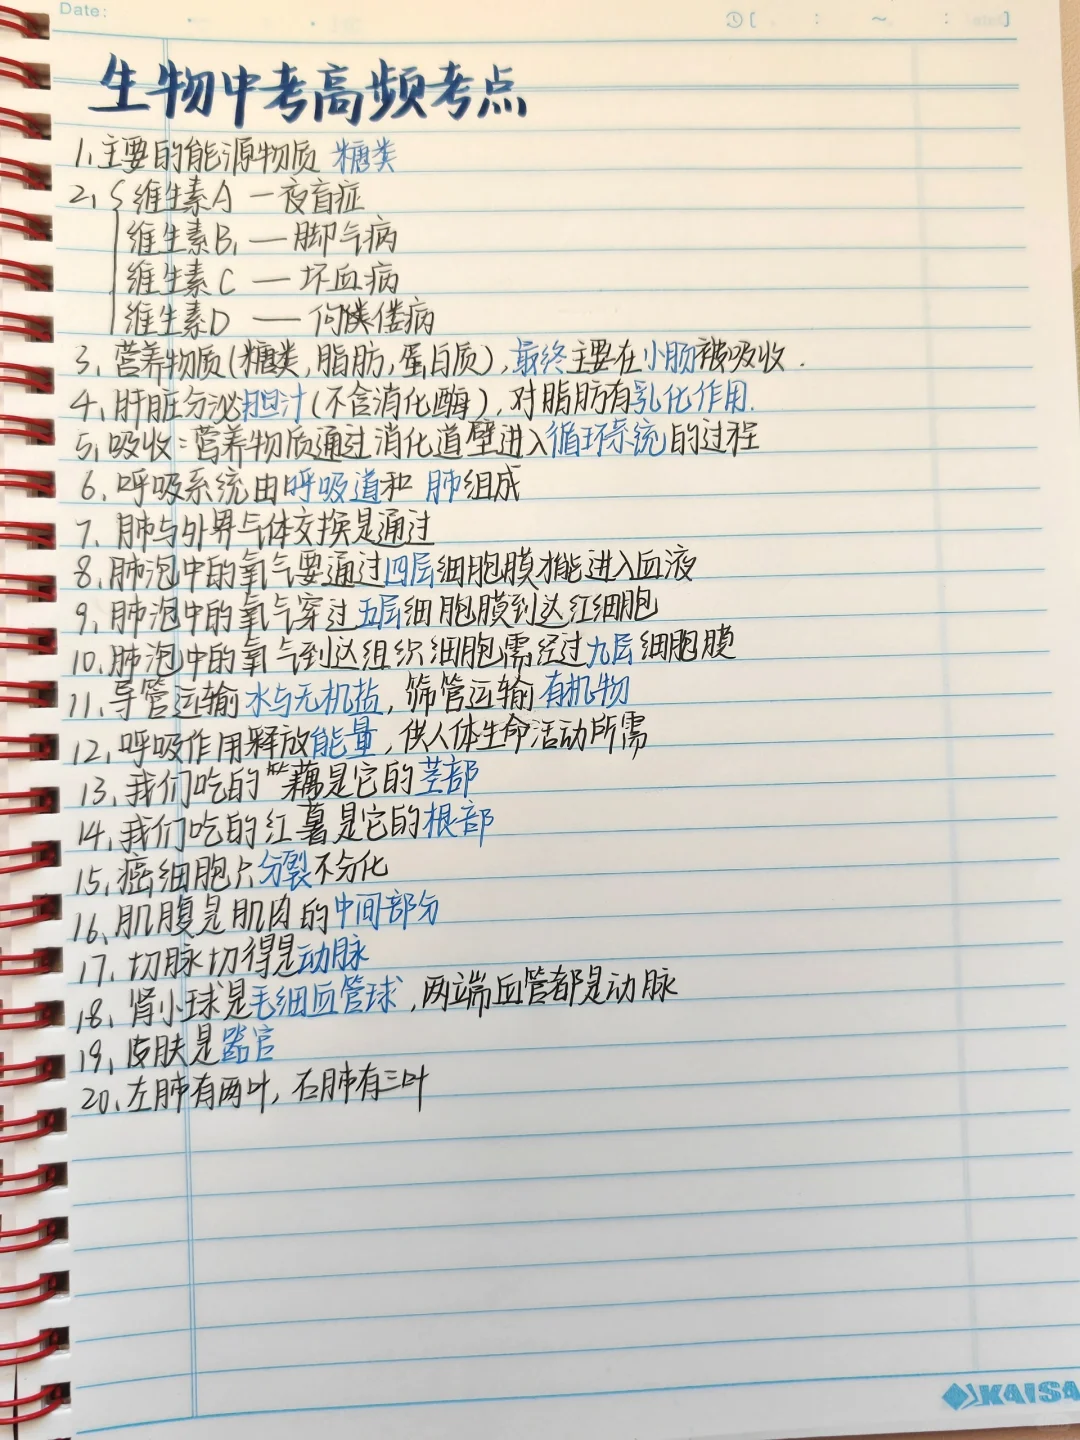 Date:
生物中考高频考点
1、主要的能源物质 糖类
2、维生素A — 夜盲症
维生素B₁ — 脚气病
维生素C — 坏血病
维生素D — 佝偻病
3、营养物质(糖类,脂肪,蛋白质),最终主要在小肠被吸收.
4、肝脏分泌胆汁(不含消化酶),对脂肪有乳化作用.
5、吸收:营养物质通过消化道壁进入循环系统的过程
6、呼吸系统由呼吸道和肺组成
7、肺与外界气体交换是通过
8、肺泡中的氧气要通过四层细胞膜才能进入血液
9、肺泡中的氧气穿过五层细胞膜到达红细胞
10、肺泡中的氧气到达组织细胞需经过九层细胞膜
11、导管运输水与无机盐,筛管运输有机物
12、呼吸作用释放能量,供人体生命活动所需
13、我们吃的藕是它的茎部
14、我们吃的红薯是它的根部
15、癌细胞只分裂不分化
16、肌腹是肌肉的中间部分
17、切脉切得是动脉
18、肾小球是毛细血管球,两端血管都是动脉
19、皮肤是器官
20、左肺有两叶,右肺有三叶
KAISA